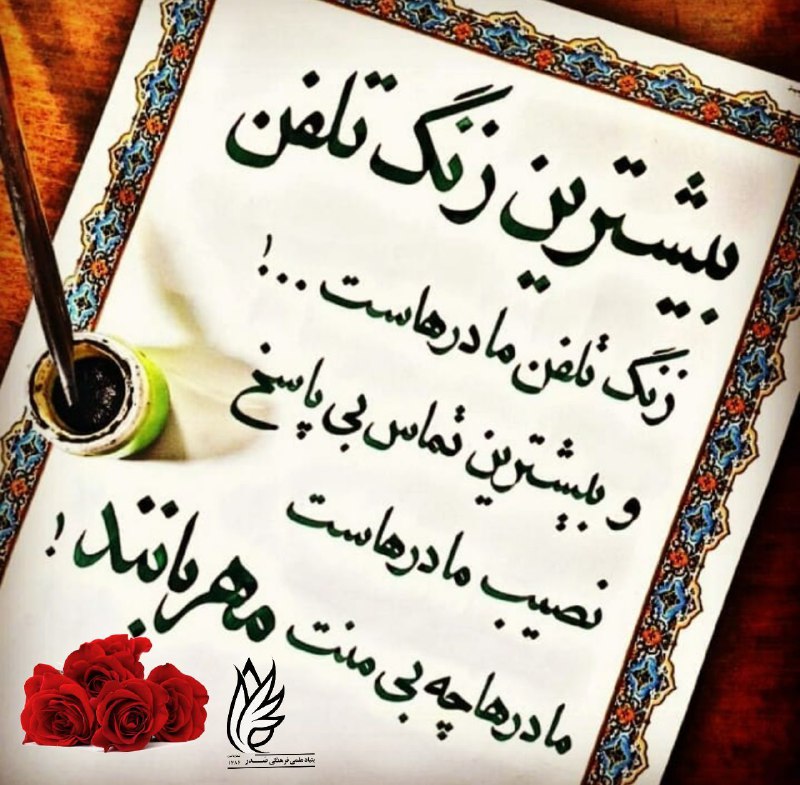 بیشترین زنگ تلفن
زنگ تلفن مادرهاست ...!
و بیشترین تماس بی پاسخ
نصیب مادرهاست
مادرها چه بی منت مهربانند !
بنیاد علمی فرهنگی صدر
۱۳۸۶